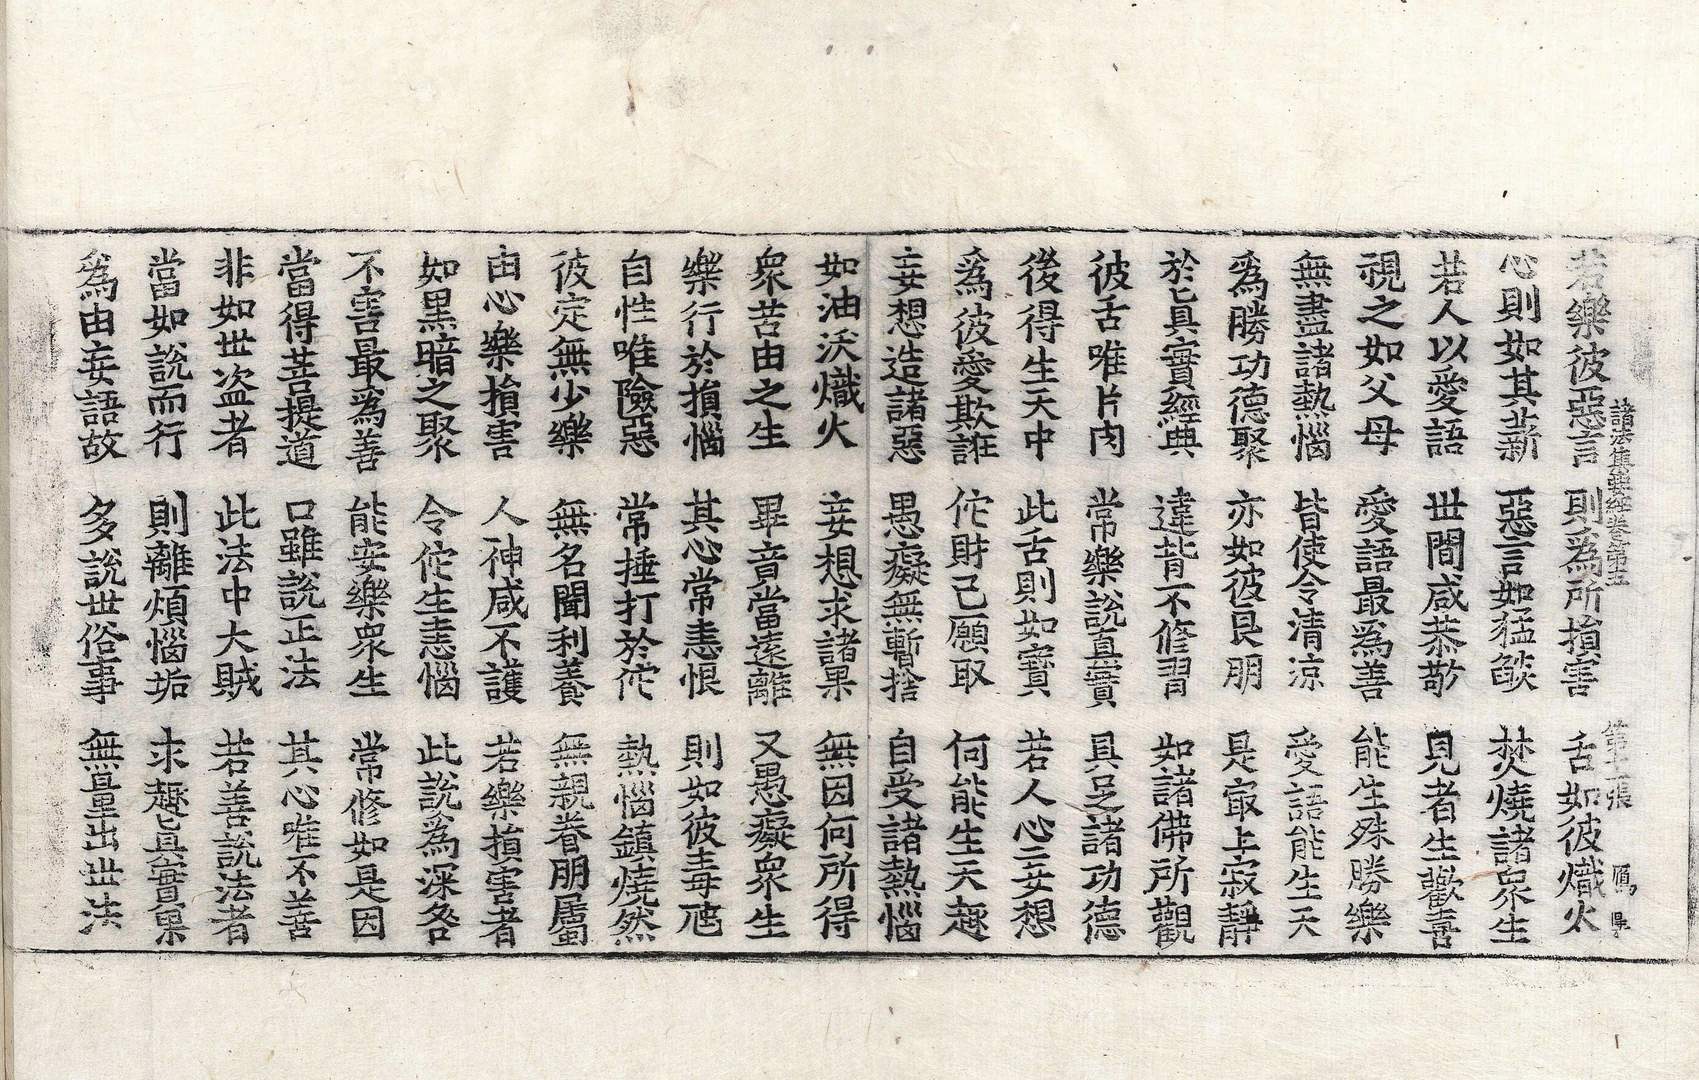 諸法集要經卷第五 第十一張 鴈
若樂彼惡言 則為所損害 舌如彼熾火
心則如其薪 惡言如猛燄 焚燒諸眾生
若人以愛語 世間咸恭敬 見者生歡喜
視之如父母 愛語最為善 能生殊勝樂
無盡諸熱惱 皆使令清涼 愛語能生天
為勝功德聚 亦如彼良朋 是寂上寂靜
於真實經典 違背不修習 如諸佛所觀
彼舌唯片肉 常樂說真實 具足諸功德
後得生天中 此舌則如寶 若人心二妄想
為彼愛欺誑 佗財己願取 何能生天趣
妄想造諸惡 愚癡無暫捨 自受諸熱惱
如油沃熾火 妄想求諸果 無因何所得
眾苦由之生 畢音當遠離 又愚癡眾生
樂行於損惱 其心常恚恨 則如彼毒虺
自性唯險惡 常捶打於佗 熱惱鎮燒然
彼定無少樂 無名聞利養 無親眷朋屬
由心樂損害 人神咸不護 若樂損害者
如黑暗之聚 令佗生恚惱 此說為深咎
不害最為善 能安樂眾生 常修如是因
當得菩提道 口雖說正法 其心唯不善
非如世盜者 此法中大賊 若善說法者
當如說而行 則離煩惱垢 末趣真實果
為由妄語故 多說世俗事 無量出世法